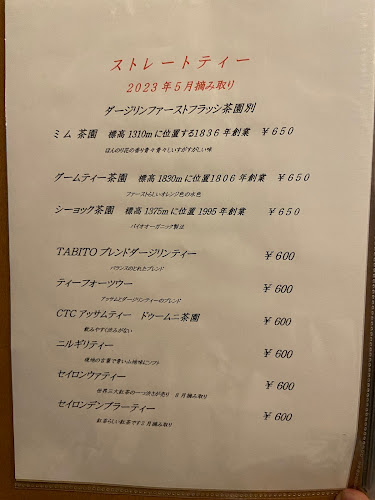 ストレートティー
2023年5月摘み取り
ダージリンファーストフラッシ茶園別
ミム 茶園 標高1310mに位置する1836年創業 ¥650
ほんのり花の香り青々青々しいすがすがしい味
グームティー茶園 標高1830mに位置1806年創業 ¥650
ファーストらしいオレンジ色の水色
シーヨック茶園 標高1375mに位置1995年創業 ¥650
バイオオーガニック製法
TABITOブレンドダージリンティー ¥600
バランスのとれたブレンド
ティーフォーツウー ¥600
アッサムとダージリンティーのブレンド
CTCアッサムティー ドゥームニ茶園 ¥600
飲みやすく渋みがない
ニルギリティー ¥600
現地の言葉で青い山地味にソフト
セイロンウァティー ¥600
世界三大紅茶の一つ渋さが売り 8月摘み取り
セイロンデンブラーティー ¥600
紅茶らしい紅茶です2月摘み取り